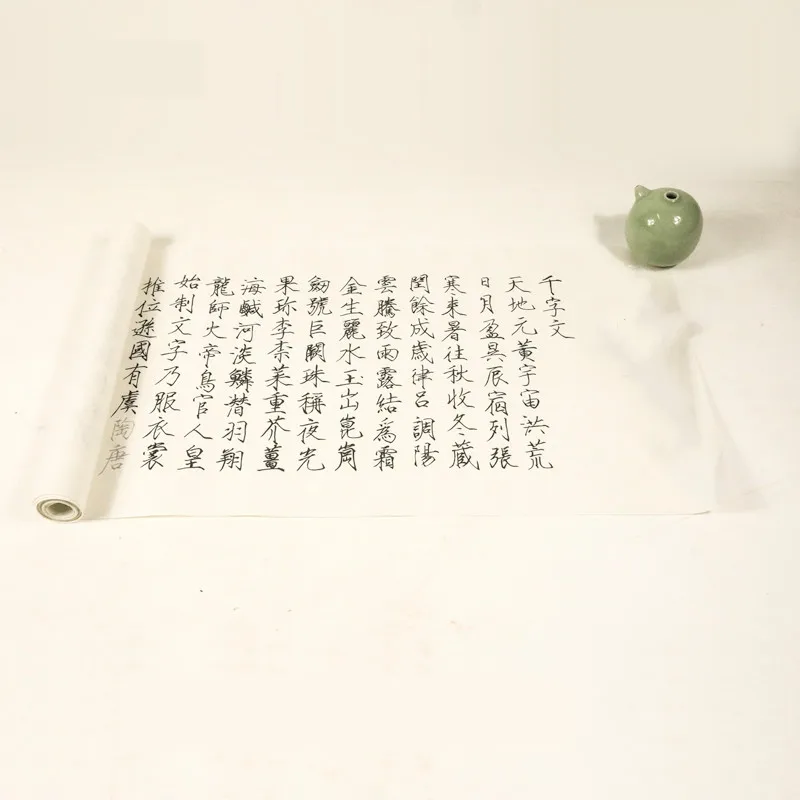 千字文
天地元黃宇宙洪荒
日月盈昃辰宿列張
寒来暑往秋收冬蔵
閏餘成歲律呂調陽
雲騰致雨露結爲霜
金生麗水玉出崑崗
劔號巨闕珠稱夜光
果珎李柰菜重芥薑
海鹹河淡鱗替羽翔
龍師火帝鳥官人皇
始制文字乃服衣裳
推位遜國有虞陶唐